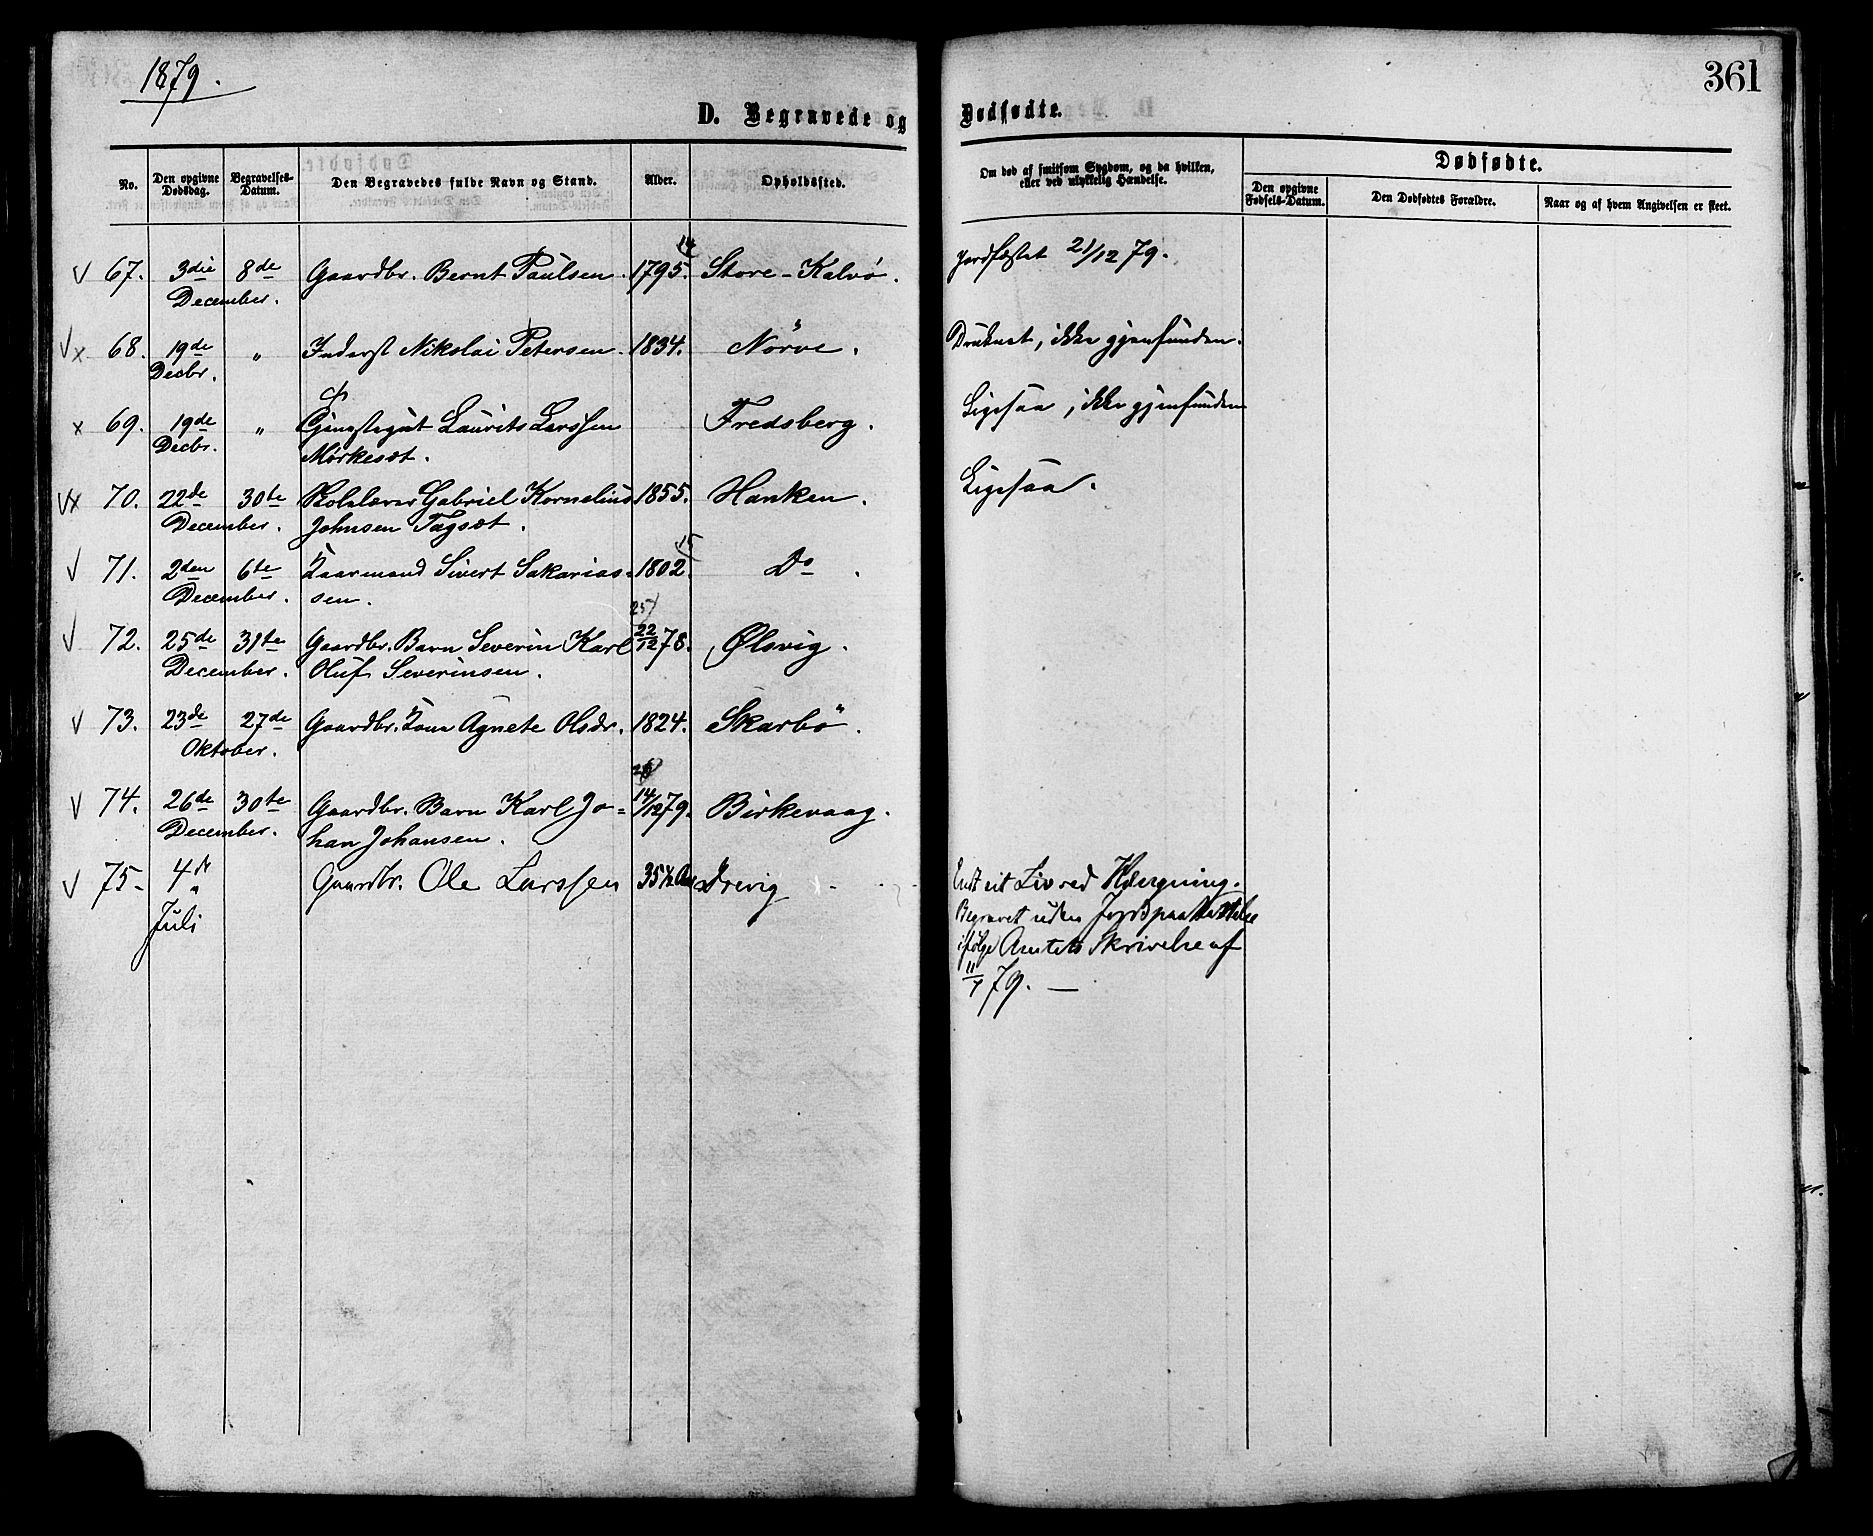 1879.
361
D. Begravede og Dødfødte.
No.
Den opgivne Dødsdag.
Begravelses-Datum.
Den Begravedes fulde Navn og Stand.
Alder.
Opholdssted.
Om død af smitsom Sygdom, og da hvilken, eller ved ulykkelig Hændelse.
Dødfødte.
Den opgivne Fødsels-Datum.
Den Dødfødtes Forældre.
Naar og af hvem Angivelsen er skeet.
67. 3die 8de Gaardbr. Bernt Paulsen. 1795. Store-Kalvø. Jordfæstet 21/12 79.
December.
68. 19de „ Inderst Nikolai Petersen. 1834. Nörve. Druknet, ikke gjenfunden.
Decbr.
69. 19de „ Gut Laurits Larssen Fredsberg. Ligesaa, ikke gjenfunden
Decbr. Mørkesæt.
70. 22de 30te Skolelærer Gabriel Kornelius 1855. Hanken. Ligesaa.
December. Johnsen Tagsæt.
71. 2den 6te Kaarmand Sivert Sakarias- 1802. Do.
December. sen.
72. 25de 31te Gaardbr. Barn Severin Karl 22/12 78. Ølsvig.
December. Oluf Severinsen.
73. 23de 27de Gaardbr. Kone Agnete Olsdr. 1824. Skarbö.
Oktober.
74. 26de 30te Gaardbr. Barn Karl Jo- 14/12 79. Birkevaag.
December. han Johansen.
75. 4de Gaardbr. Ole Larssen 35½ Aar Drevig Endt sit Liv ved Hængning.
Juli Begravet uden Jordpaakastelse
ifølge Amtets Skrivelse af
11/7 79. —